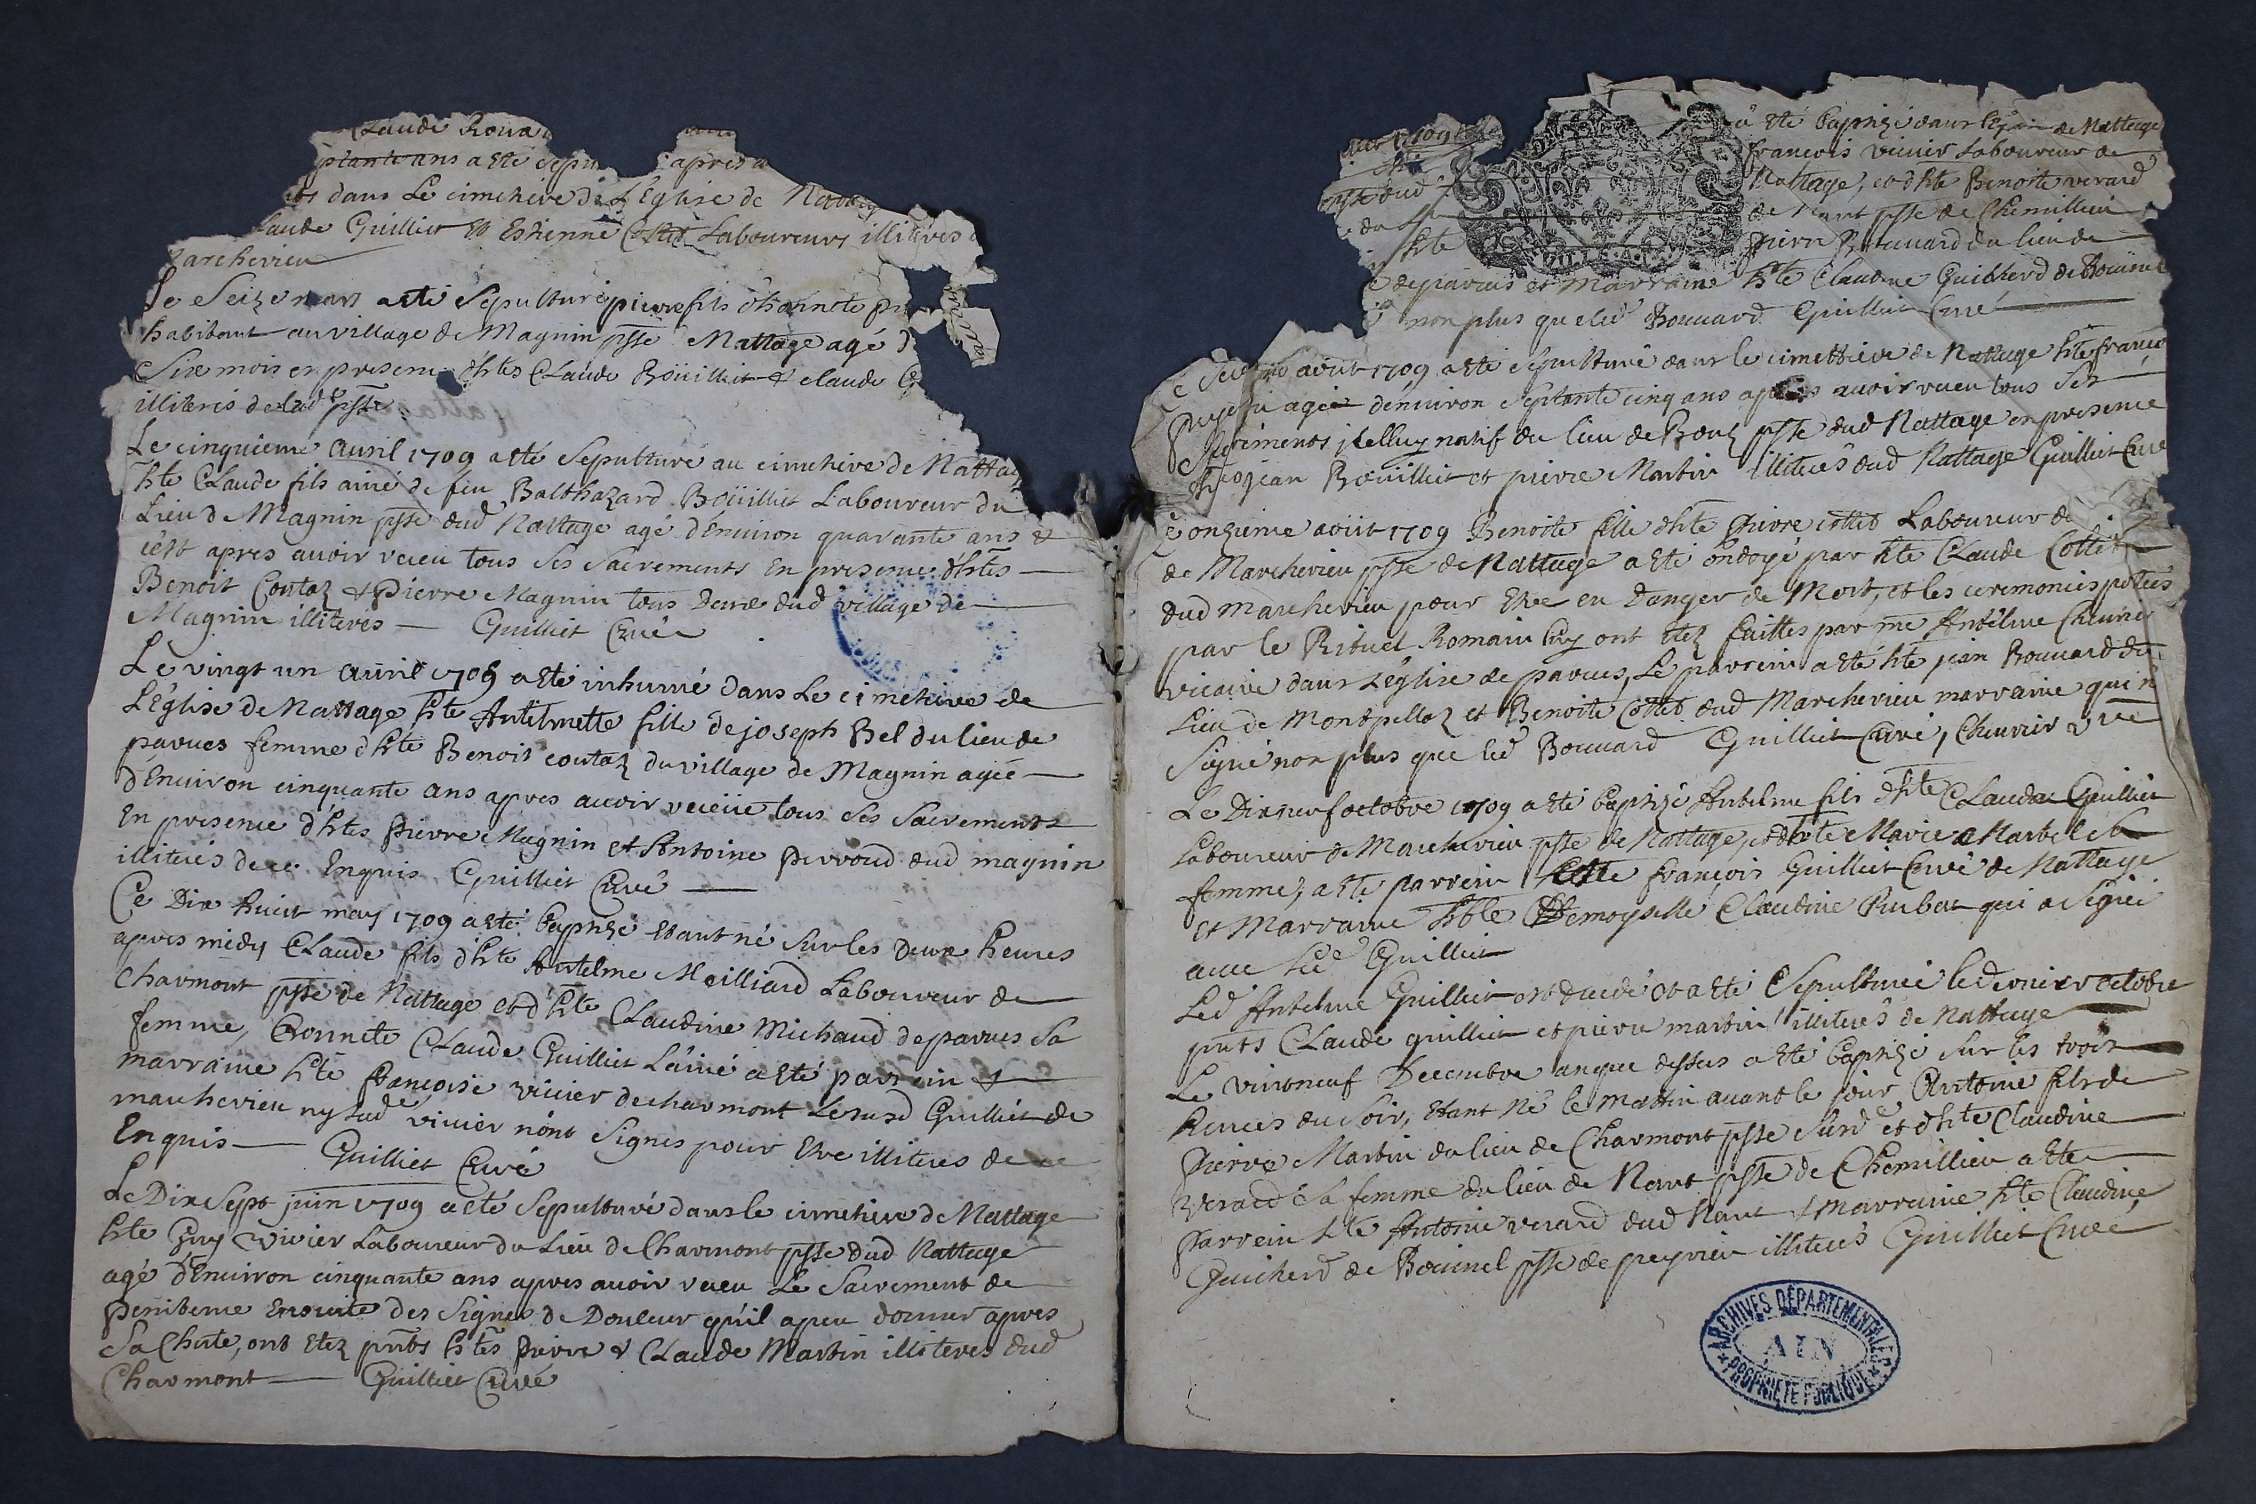 Claude Roua
ptante ans a ete sepu apres a
dans Le cimetiere de L'Eglise de Nattag
laude Guilliet et Estienne Collet Laboureurs illiteres
archerieu
Le Seize mars a ete sepulturé pierre fils d'honnete
habitant au village de Magnin psse Nattage agé
Six mois en presence d'htes Claude Boüilliet & claude
illiteres de lad psse
Le cinquieme avril 1709 a eté sepulturé au cimetiere de Nattag
hte Claude fils ainé de feu Balthazard Boüilliet Laboureur du
Lieu de Magnin psse dud Nattage agé d'Environ quarante ans &
apres avoir receu tous ses sacrements en presence d'htes
Benoit Contaz & Pierre Magnin tous deux dud village de
Magnin illiteres Guilliet Curé
Le vingt un avril 1709 a eté inhumé dans Le cimetiere de
L'Eglise de Nattage hte Antelmette fille de joseph Bel du lieu de
parves femme d'hte Benoit contaz du village de Magnin agée
d'Environ cinquante ans apres avoir receüe tous ses sacrements
En presence d'htes Pierre Magnin et Antoine Perroud dud magnin
illiterés de ce Enquis Guilliet Curé
Ce Dix huit may 1709 a eté baptizé Etant né sur les deux heures
apres midy Claude fils d'hte Antelme Mailliard Laboureur de
Charmont psse de Nattage et d'hte Claudine Michaud de parves sa
femme, honnete Claude Guilliet L'ainé a eté parrein &
marraine hte françoise vivier de charmont Le susd Guilliet de
marcherieu ny lade vivier n'ont signes pour Etre illiteres de ce
Enquis Guilliet Curé
Le Dix sept juin 1709 a eté sepulturé dans le cimetiere de Nattage
hte Guy Vivier Laboureur du Lieu de Charmont psse dud Nattage
agé d'Environ cinquante ans apres avoir receu Le sacrement de
penitence Ensuite des signes de Douleur qu'il a peu donner apres
sa Chute, ont etez pnts htes Pierre & Claude Martin illiteres dud
Charmont Guilliet Curé
1709
a eté baptizé dans de Nattage
françois vivier Laboureur de
Nattage, et d'hte Benoite verard
de Nant psse de Chemillieu
hte Pierre Bouvard du lieu de
de parves et Marraine hte Claudine Guicherd de Bouinel
non plus que led Bouvard Guilliet Curé
août 1709 a eté sepulturé dans le cimettiere de Nattage hte franço
agé d'environ septante cinq ans apres avoir receu tous ses
sacréments icelluy natif du lieu de psse dud Nattage en presence
jean Boüilliet et pierre Martin illiterés dud Nattage Guilliet Curé
Ce onzieme aoüt 1709 Benoite fille d'hte Pierre collet Laboureur de
de Marcherieu psse de Nattage a eté ondoyé par hte Claude Collet
dud Marcherieu pour Etre en danger de Mort, et les ceremonies
par le Rituel Romain luy ont etez faittes par me Antelme Chevrier
vicaire dans L'église de parves, Le parrein a eté hte jean Bouvard du
Lieu de Montpellaz et Benoite Collet dud Marcherieu marraine qui n
signé non plus que led Bouvard Guilliet Curé, Chevrier
Le Dixneuf octobre 1709 a eté baptizé Antelme fils d'hte Claude Guilliet
Laboureur de Marcherieu psse de Nattage, et d'hte Marie
femme, a ete parrein françois Guilliet Curé de Nattage
et Marraine Demoyselle Claudine Rubat qui a signé
avec led Guilliet
Led Antelme Guilliet est decedé et a eté sepulturé le dernier octobre
pnts Claude guilliet et pierre martin illiterés de Nattage
Le vintneuf Decembre an que dessus a eté baptizé sur les trois
heures du soir, étant né le mattin avant le jour Antoine fils de
Pierre Martin du lieu de Charmont psse susd et d'hte Claudine
Verard sa femme du lieu de Nant psse de Chemillieu a ete
Parrein hte Antoine verard dud Nant & marraine hte Claudine
Guicherd de Bouinel psse de peyrieu illiterés Guilliet Curé
ARCHIVES DÉPARTEMENTALES
AIN
PROPRIÉTÉ PUBLIQUE